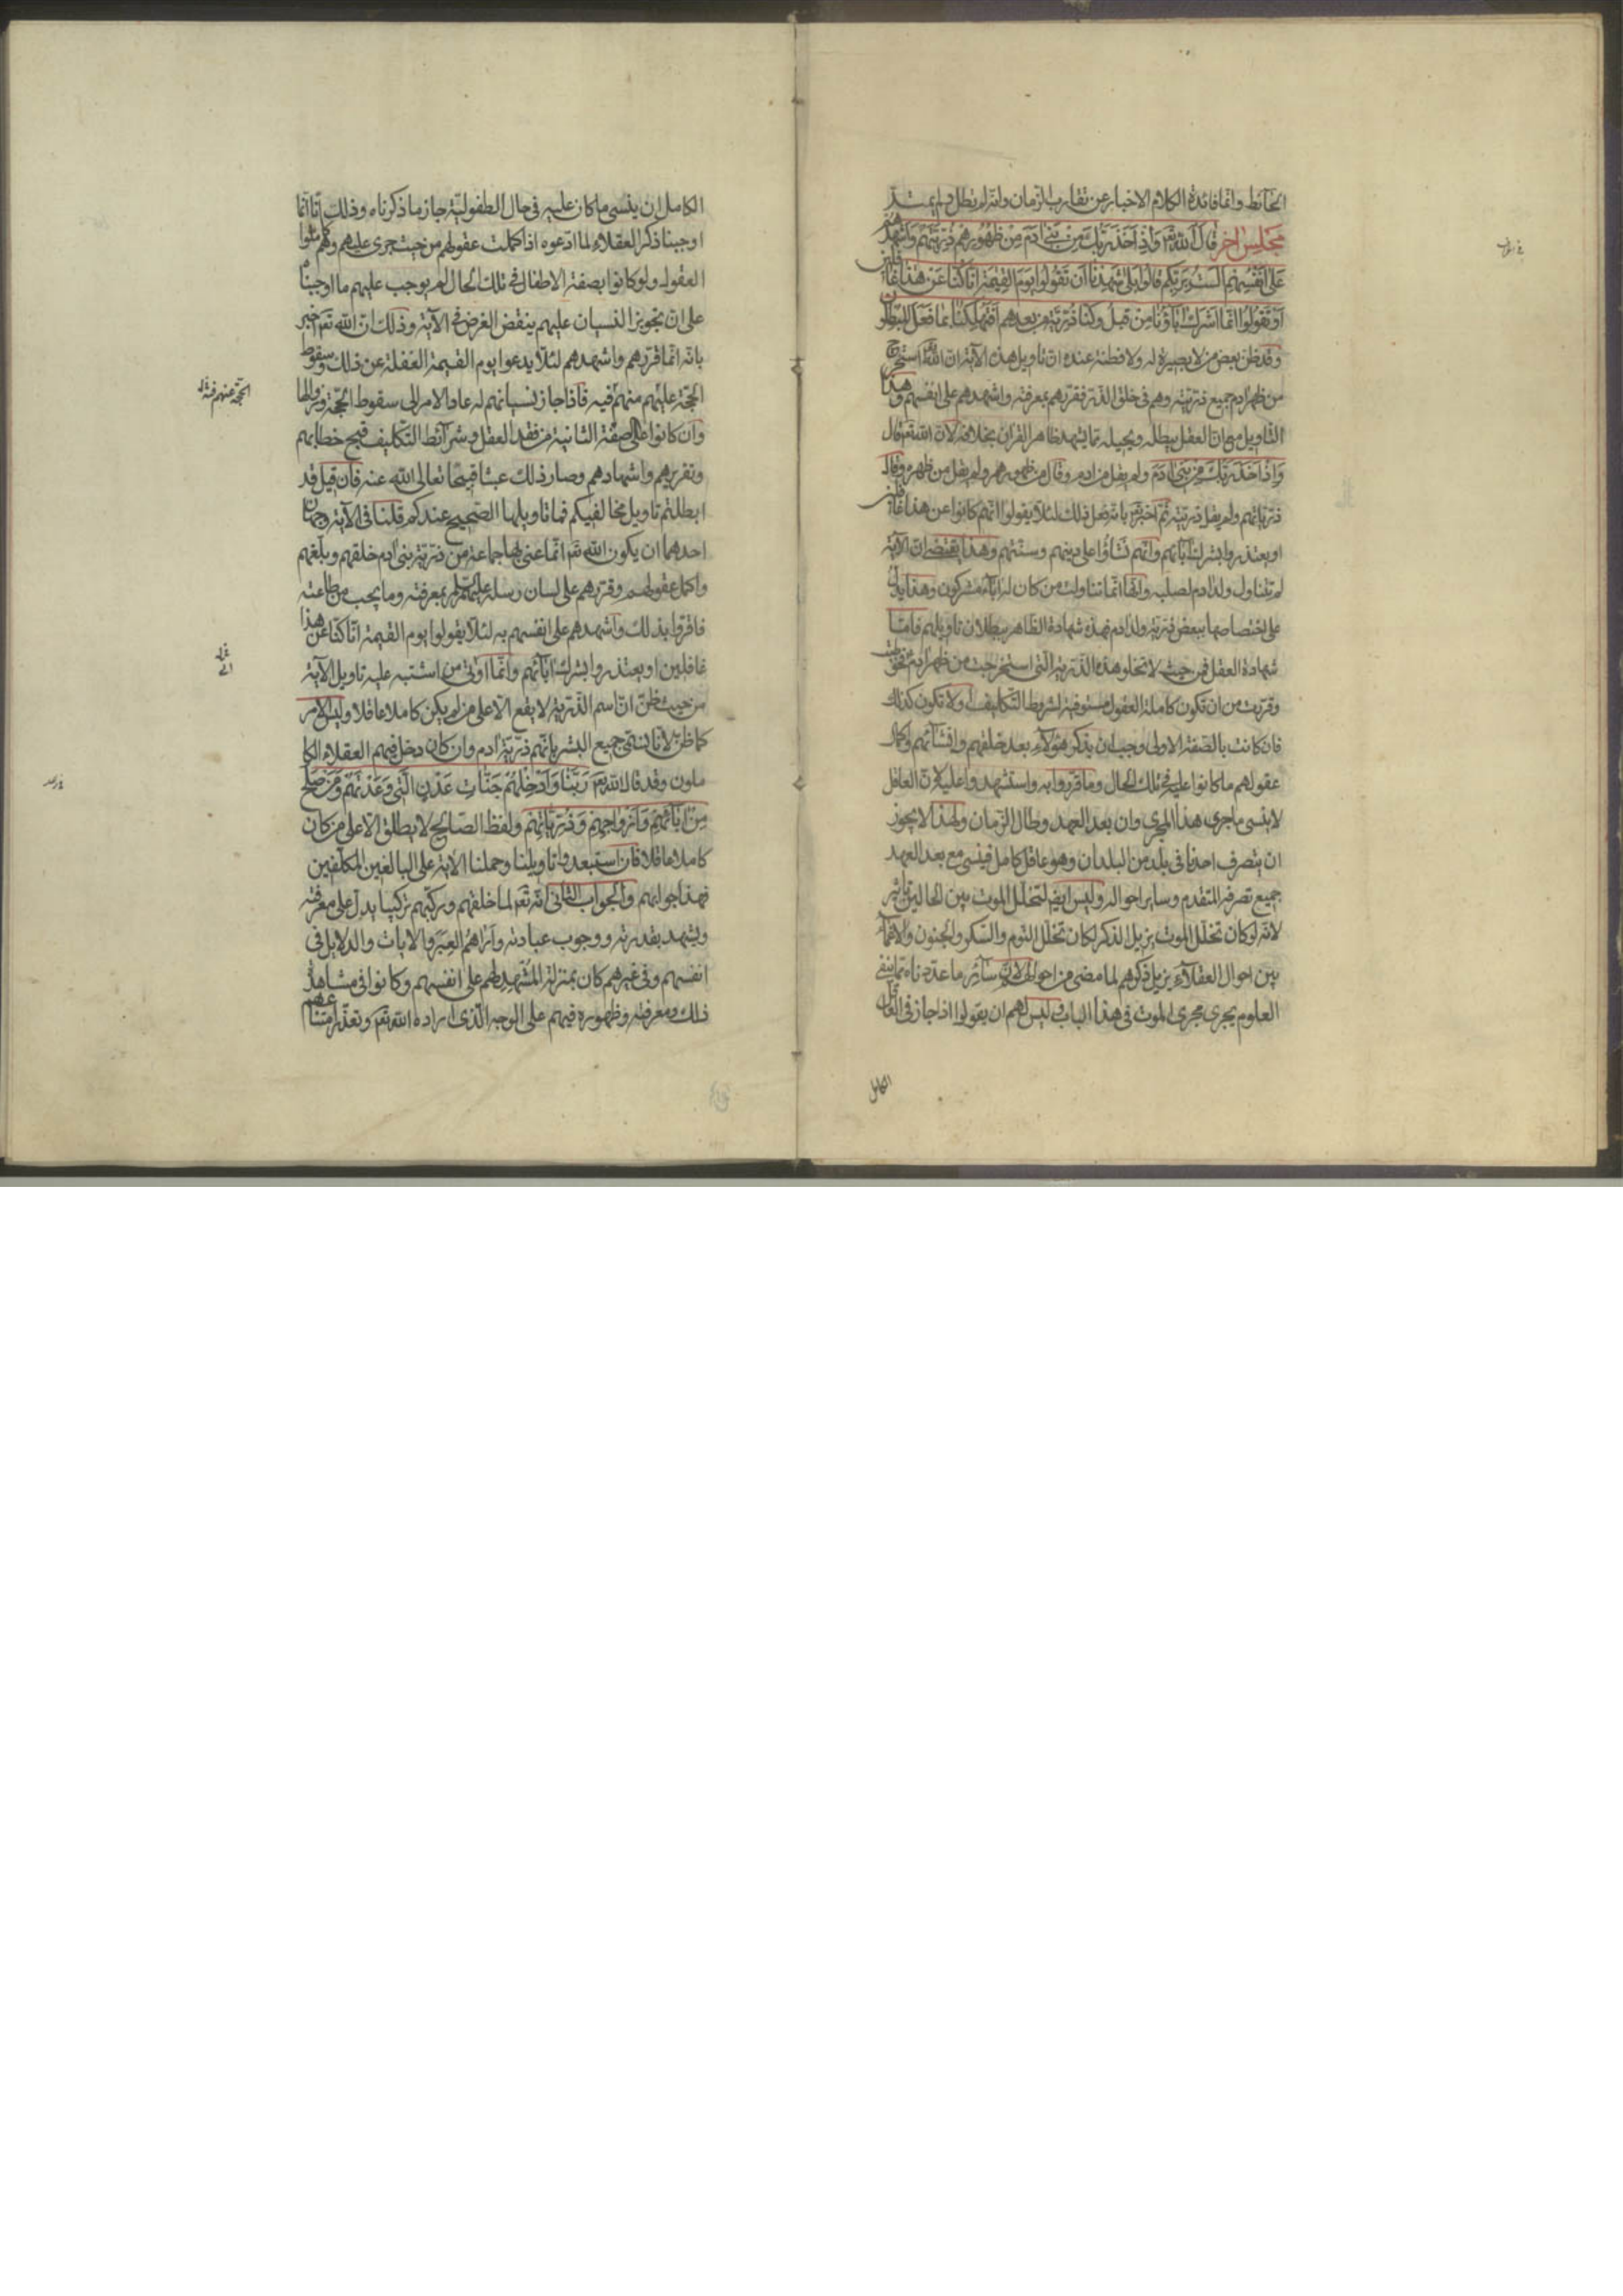 الحائط وانما فائدة الكلام الاخبار عن تقارب الزمان وانه لم يطل ولم يمتد
مجلس اخر قال الله تع وَاِذْ اَخَذَ رَبُّكَ مِنْ بَنى ادَمَ مِنْ ظُهُورِهِمْ ذُرّيَّتَهُمْ وَاَشْهَدَهُمْ
عَلى اَنْفُسِهِمْ اَلَسْتُ بِرَبِّكُمْ قالُوا بَلى شَهِدْنا اَنْ تَقُولُوا يَوْمَ القِيمَةِ اِنّا كُنّا عَنْ هذا غافلين
اَوْ تَقُولُوا اِنَّما اَشْرَكَ اباؤُنا مِنْ قَبْلُ وَكُنّا ذُرِّيَّةً مِنْ بعدهم اَفَتُهْلِكُنا بما فَعَلَ المبطلون
وقد ظن بعض من لا بصيرة له ولا فطنة عنده ان تاويل هذه الاية ان الله تع استخرج
من ظهر ادم جميع ذريته وهم فى خلق الذر فقررهم بمعرفته واشهدهم على انفسهم وهذا
التاويل مع ان العقل يبطله ويحيله مما يشهد ظاهر القران بخلافه لان الله تع قال
وَاِذْ اَخَذَ رَبُّكَ مِنْ بَنى ادَمَ ولم يقل من ادم وقال من ظهورهم ولم يقل من ظهره وقال
ذرياتهم ولم يقل ذريته ثم اخبر تع بانه فعل ذلك لئلا يقولوا انهم كانوا عن هذا غافلين
او يعتذروا بشرك ابائهم وانهم نشاؤا على دينهم وسنتهم وهذا يقتضى ان الاية
لم تتناول ولد ادم لصلبه وانها انما تناولت من كان له اباء مشركون وهذا يدل
على اختصاصها ببعض ذرية ولد ادم فهذه شهادة الظاهر ببطلان تاويلهم فاما
شهادة العقل فمن حيث لا تخلو هذه الذرية التى استخرجت من ظهر ادم فخوطبت
وقررت من ان تكون كاملة العقول مستوفية لشروط التكليف او لا تكون كذلك
فان كانت بالصفة الاولى وجب ان يذكر هؤلاء بعد خلقهم وانشائهم واكمال
عقولهم ما كانوا عليه فى تلك الحال وما قرروا به واستشهدوا عليه لان العاقل
لا ينسى ما جرى هذا المجرى وان بعد العهد وطال الزمان ولهذا لا يجوز
ان يتصرف احدنا فى بلد من البلدان وهو عاقل كامل فينسى مع بعد العهد
جميع تصرفه المتقدم وساير احواله وليس ايض لتخلل الموت بين الحالين تاثير
لانه لو كان تخلل الموت يزيل الذكر لكان تخلل النوم والسكر والجنون والاغماء
بين احوال العقلاء يزيل ذكرهم لما مضى من احوالهم لان سائر ما عددناه مما ينفى
العلوم يجرى مجرى الموت فى هذا الباب وليس لهم ان يقولوا اذا جاز فى العاقل
الكامل
الكامل ان ينسى ما كان عليه فى حال الطفولية جاز ما ذكرناه وذلك انا انما
اوجبنا ذكر العقلاء لما ادعوه اذا كملت عقولهم من حيث جرى عليهم وهم كاملوا
العقول ولو كانوا بصفة الاطفال فى تلك الحال لم يوجب عليهم ما اوجبناه
على ان تجويز النسيان عليهم ينقض الغرض فى الاية وذلك ان الله تع اخبر
بانه انما قررهم واشهدهم لئلا يدعوا يوم القيمة الغفلة عن ذلك وسقوط
الحجة عليهم منهم فيه فاذا جاز نسيانهم له عاد الامر الى سقوط الحجة وزوالها
وان كانوا على الصفة الثانية من فقد العقل وشرائط التكليف قبح خطابهم
وتقريرهم واشهادهم وصار ذلك عبثا قبيحا تعالى الله عنه فان قيل قد
ابطلتم تاويل مخالفيكم فما تاويلها الصحيح عندكم قلنا فى الاية وجهان
احدهما ان يكون الله تع انما عنى بها جماعة من ذرية بنى ادم خلقهم وبلغهم
واكمل عقولهم وقررهم على لسان رسله عليهم السلم بمعرفته وما يجب من طاعته
فاقروا بذلك واشهدهم على انفسهم به لئلا يقولوا يوم القيمة انا كنا عن هذا
غافلين او يعتذروا بشرك ابائهم وانما اوتى من اشتبه عليه تاويل الاية
من حيث ظن ان اسم الذرية لا يقع الا على من لم يكن كاملا عاقلا وليس الامر
كما ظن لانا نسمى جميع البشر بانهم ذرية ادم وان كان دخل فيهم العقلاء الكا
ملون وقد قال الله تع رَبَّنا وَاَدْخِلْهُمْ جَنّاتِ عَدْنٍ الَّتى وَعَدْتَهُمْ وَمَنْ صَلَحَ
مِنْ ابائِهِمْ وَاَزْواجِهِمْ وَذُرِّيّاتِهِمْ ولفظ الصالح لا يطلق الا على من كان
كاملا عاقلا فان استبعدوا تاويلنا وحملنا الاية على البالغين المكلفين
فهذا جوابهم والجواب الثانى انه تع لما خلقهم وركبهم تركيبا يدل على معرفته
ويشهد بقدرته ووجوب عبادته واراهم العبر والايات والدلايل فى
انفسهم وفى غيرهم كان بمنزلة المشهد لهم على انفسهم وكانوا فى مشاهدة
ذلك ومعرفته وظهوره فيهم على الوجه الذى اراده الله تع وتعذر امتناعهم